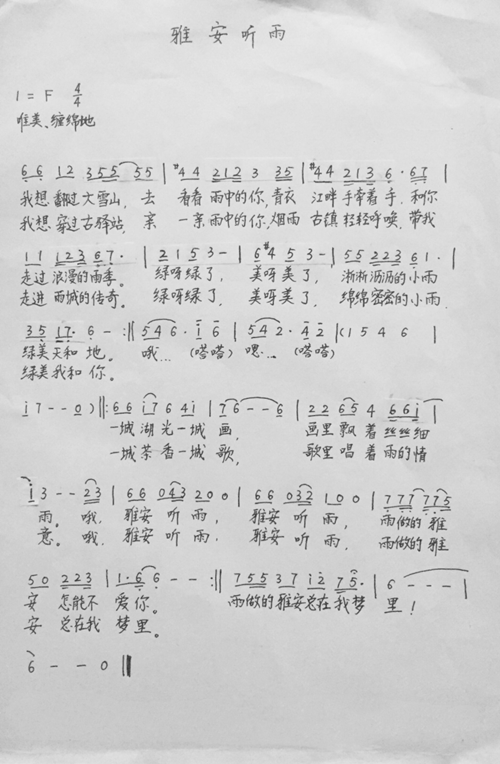 雅安听雨
1 = F 4/4
唯美、缠绵地
6 6 1 2 3 5 5 5 5 | #4 4 2 1 2 3 3 5 | #4 4 2 1 3 6 · 6 7 |
我想翻过大雪山，去 看看雨中的你，青衣 江畔手牵着手，和你
我想穿过古驿站，亲 一亲雨中的你，烟雨 古镇轻轻呼唤，带我
1 1 1 2 3 6 7 · | 2 1 5 3 - | 6 #4 5 3 - | 5 5 2 2 3 6 1 · |
走过浪漫的雨季。 绿呀绿了， 美呀美了， 淅淅沥沥的小雨
走进雨城的传奇。 绿呀绿了， 美呀美了， 绵绵密密的小雨
3 5 1 7 · 6 - :|| 5 4 6 · 1 6 | 5 4 2 · 4 2 | (1 5 4 6 |
绿美天和地。 哦… (嗒嗒) 嘿… (嗒嗒)
绿美我和你。
1 7 - - 0 ) ||: 6 6 1 7 6 4 1 | 7 6 - - 6 | 2 2 6 5 4 6 6 1 |
一城湖光一城画， 画里飘着丝丝细
一城茶香一城歌， 歌里唱着雨的情
1 3 - - 2 3 | 6 6 0 4 3 2 0 0 | 6 6 0 3 2 1 0 0 | 7 7 7 7 7 5
雨。哦，雅安听雨， 雅安听雨， 雨做的雅
意。哦，雅安听雨， 雅安听雨， 雨做的雅
5 0 2 2 3 | 1 · 6 6 - - :|| 7 5 5 3 7 1 2 7 5 · | 6 - - - |
安 怎能不爱你。 雨做的雅安总在我梦里！
安 总在我梦里。
6 - - 0 ||